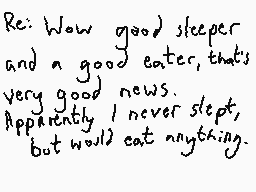 Re: Wow good sleeper
and a good eater, that's
very good news.
Apparently I never slept,
but would eat anything.